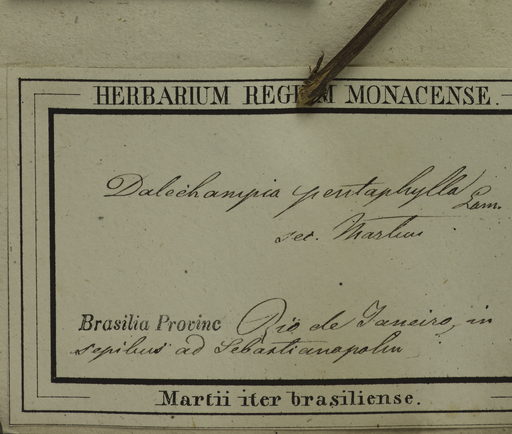 HERBARIUM REGIUM MONACENSE.
Dalechampia pentaphylla Lam.
sec. Martius
Brasilia Provinc Rio de Janeiro, in
sepibus ad Sebastianopolin
Martii iter brasiliense.